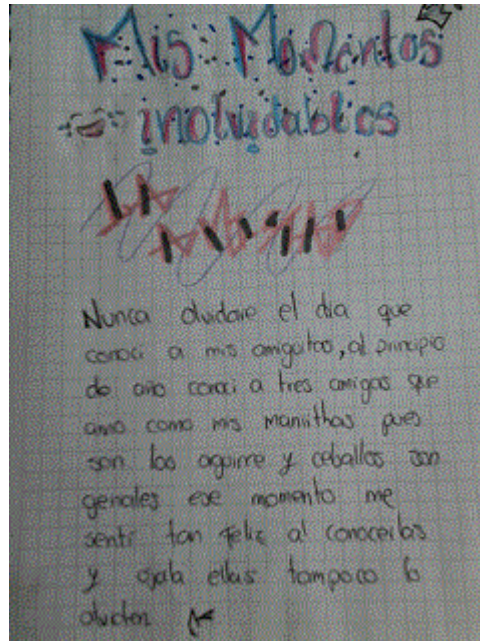 Mis Momentos
inolvidables
Nunca olvidare el dia que
conoci a mis amiguitas, al principio
de año conoci a tres amigas que
amo como mis manithas pues
son las aguirre y ceballos son
geniales ese momento me
senti tan feliz al conocerlas
y ojala ellas tampoco lo
olviden